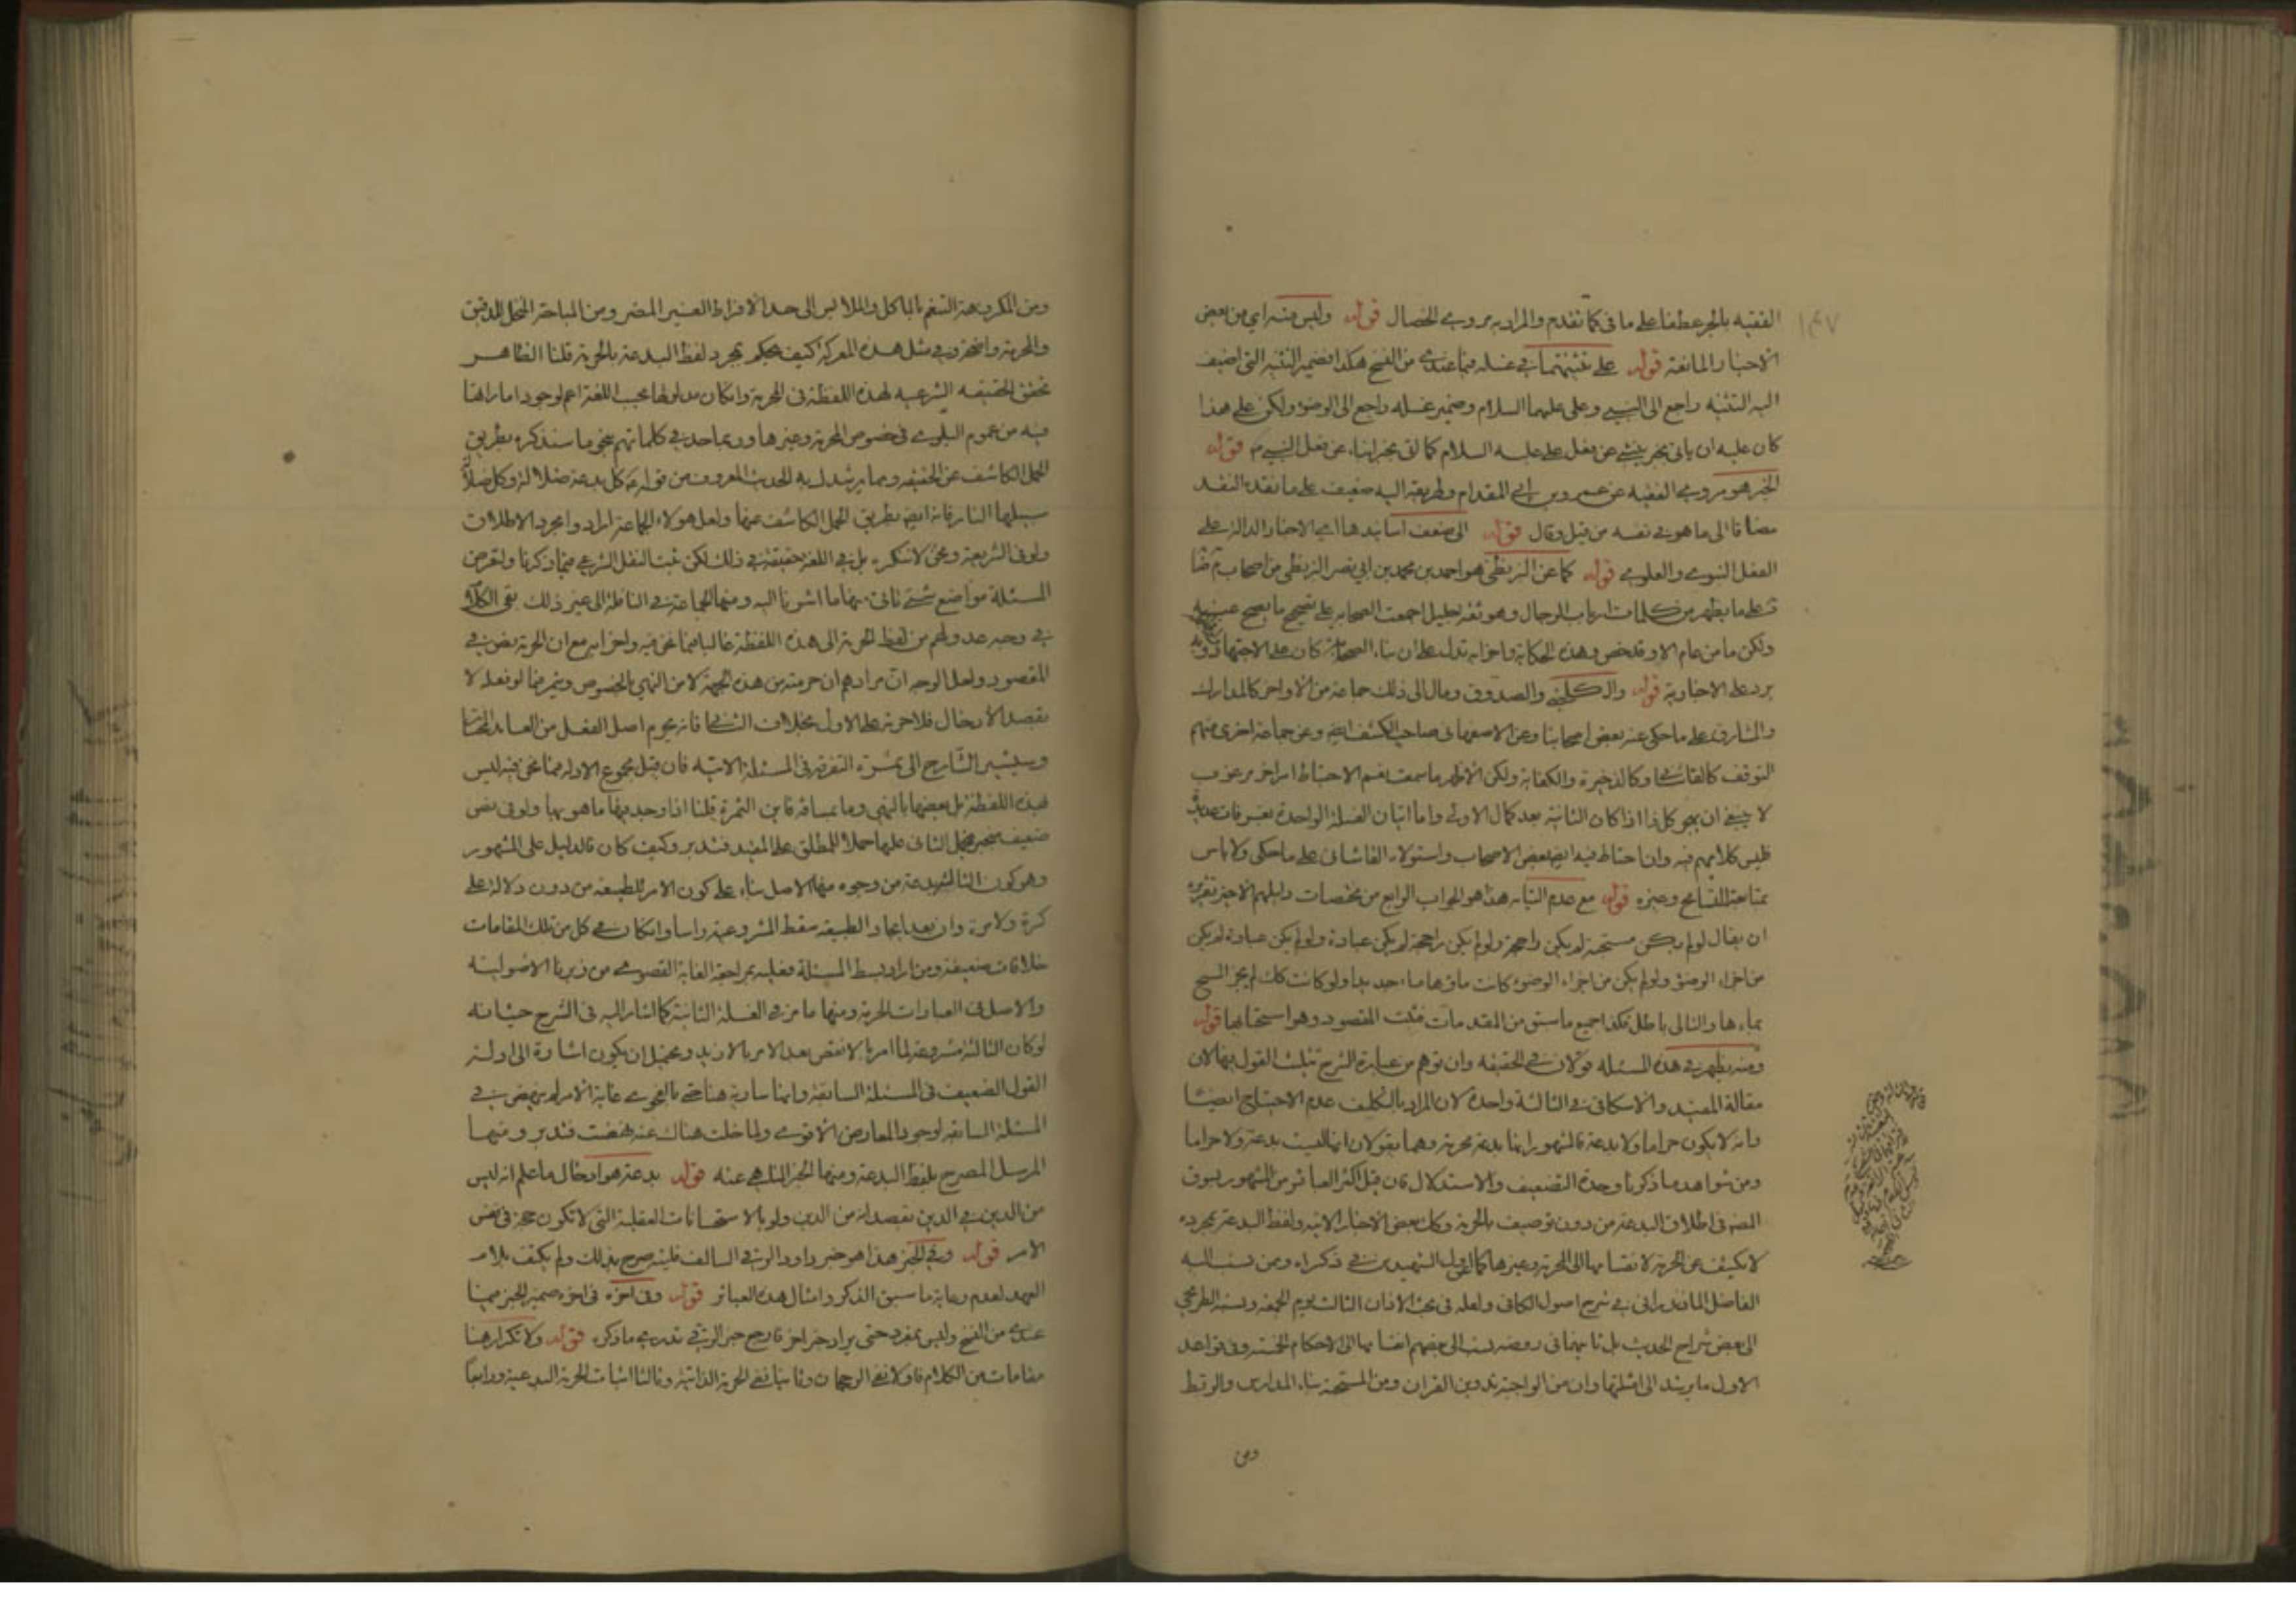 ١٤٧
الفقيه بالجر عطفا على ما فى كما تقدم والمراد به مروي الخصال قوله وليس منه اي من بعض
الاخبار المانعة قوله على تثنيتهما في غسله فيما عندي من النسخ هكذا فضمير التثنية التى اضيف
اليه التثنية راجع الى النبي وعلى عليهما السلام وضمير غسله راجع الى الوضوء ولكن على هذا
كان عليه ان ياتى بخبر ينبئ عن فعل على عليه السلام كما اتى بخبر انباء عن فعل النبي ص قوله
الخبر هو مروي الفقيه عن عمرو بن ابي المقدام وطريقه اليه ضعيف على ما نقده النقد
مضافا الى ما هو في نفسه من قيل وقال قوله الى ضعف اسانيدها اي الاخبار الدالة على
الفعل النبوي والعلوي قوله كما عن البزنطى هو احمد بن محمد بن ابي نصر البزنطى من اصحاب
على ما يظهر من كلمات ارباب الرجال وهو ثقة جليل اجمعت العصابه على تصحيح ما يصح عنه
ولكن ما من عام الا وقد خص وهذه الحكاية واضرابه تدل على ان بناء الصحابة كان على الاجتهاد وبه
يرد على الاخبارية قوله والكلينى والصدوق ومال الى ذلك جماعة من الاواخر كالمدارك
والمشارق على ما حكى عنه بعض اصحابنا وعن الاصفهانى صاحب الكشف ايضا وعن جماعة اخرى منهم
التوقف كالقاشانى وكالذخيرة والكفاية ولكن الاظهر ما سمعت نعم الاحتياط امر اخر مرغوب
لا ينبغى ان يهجر كل ذا اذا كان الثانية بعد كمال الاولى واما اتيان الغسلة الواحدة بغرفات عديدة
فليس كلامهم فيه وان احتاط فيه ايضا بعض الاصحاب واستولاه القاشانى على ما حكى ولا باس
بمتابعته للتسامح وغيره قوله مع عدم التيام هذا هو الجواب الرابع من مختصات دليلهم الاخير تقريره
ان يقال لو لم يكن مستحبة لم يكن راجحة ولو لم يكن راجحة لم يكن عبادة ولو لم يكن عبادة لم يكن
من اجزاء الوضوء ولو لم يكن من اجزاء الوضوء كانت ماؤها ماء جديدا ولو كانت كك لم يجز المسح
بماءها والتالى باطل فكذا جميع ما سبق من المقدمات فثبت المقصود وهو استحبابها قوله
ومنه يظهر في هذه المسئله قولان في الحقيقه وان توهم من عبارة الشرح تثليث القول فيها لان
مقالة المفيد والاسكافى في الثالثة واحدة لان المراد بالتكليف عدم الاحتياج ايضا
وانه لا يكون حراما ولا بدعة فالمشهور انها بدعة محرمة وهما يقولان انها ليست بدعة ولا حراما
ومن شواهد ما ذكرنا وحدة التضعيف والاستدلال فان قيل اكثر العبائر من المشهور يسوق
المضمار فى اطلاق البدعة من دون توصيف بالحرمة وكك بعض الاخبار الاتية ولفظ البدعة بمجرده
لا يكشف عن الحرمة لانقسامها الى المحرمة وغيرها كما اول الشهيد في ذكراه ومن نسب اليه
الفاضل المازندرانى في شرح اصول الكافى ولعله فى بحث الاذان الثالث يوم الجمعه ونسبه الطريحي
الى بعض شراح الحديث بل ثانيهما فى روضه نسب الى بعضهم انقسامها الى الاحكام الخمسة وفى قواعد
الاول ما يرشد الى امثلتها وان من الواجبة تدوين القران ومن المستحبة بناء المدارس والربط
ومن
ومن المكروهة التنعم بالماكل والملابس الى حد الافراط الغير المضر ومن المباحة المنخل للدقيق
والمحرمة واضحة وفى مثل هذه المعركة كيف يحكم بمجرد لفظ البدعة بالحرمة قلنا الظاهر
تحقق الحقيقه الشرعيه لهذه اللفظة فى المحرمة وانكان مدلولها بحسب اللغة اعم لوجود اماراتها
فيه من عموم البلوى فى خصوص المحرمة وغيرها وربما حد فى كلماتهم بنحو ما سنذكره بطريق
الحمل الكاشف عن الحقيقه ومما يرشد اليه الحديث المعروف من قوله ع كل بدعة ضلالة وكل ضلالة
سبيلها النار فانه ايضا بطريق الحمل الكاشف عنها ولعل هولاء الجماعة ارادوا مجرد الاطلاق
ولو فى الشريعة ونحن لا ننكره بل في اللغة حقيقة في ذلك لكن ثبت النقل الشرعي فيما ذكرنا ولتعرض
المسئلة مواضع شتى تاتى منها ما اشرنا اليه ومنها الجماعة في النافلة الى غير ذلك بقى الكلام
في وجه عدولهم من لفظ الحرمة الى هذه اللفظة غالبا فيما نحن فيه واضرابه مع ان الحرمة نص في
المقصود ولعل الوجه ان مرادهم ان حرمته من هذه الجهة لا من النهي بالخصوص وغيره فيما لو فعله لا
بقصد الادخال فلا حرمة على الاول بخلاف الثانى فانه يحرم اصل الفعل من العامد المختار
وسيشير الشارح الى ثمرة التفرقة فى المسئلة الاتيه فان قيل مجموع الادلة فيما نحن فيه ليس
بهذه اللفظة بل بعضها بالنهي وما بمساقه فاين الثمرة قلنا اذا وجد فيها ما هو بها ولو فى نص
ضعيف منجبر يحمل الثانى عليها حملا للمطلق على المقيد فتدبر وكيف كان فالدليل على المشهور
وهو كون الثالثة بدعة من وجوه منها الاصل بناء على كون الامر للطبيعه من دون دلالة على
كرة ولا مرة وان بعد ايجاد الطبيعه سقط المشروعية راسا وانكان في كل من تلك المقامات
خلافات ضعيفة ومن اراد بسط المسئلة فعليه بمراجعة الغاية القصوى من زبرنا الاصوليه
والاصل فى العبادات الحرمة ومنها ما مر فى الغسلة الثانية كما اشار اليه فى الشرح حيث انه
لو كان الثالثة مشروعة لما امر بالانقص بعد الامر بالازيد ويحتمل ان يكون اشارة الى ادلة
القول الضعيف فى المسئلة السابقة وانها سارية هنا حتى بالفحوى غاية الامر لم ينهض في
المسئلة السابقه لوجود المعارض الاقوى ولما خلت هناك عنه نهضت فتدبر ومنها
المرسل المصرح بلفظ البدعة ومنها الخبر الناهي عنه قوله بدعة هو ادخال ما علم انه ليس
من الدين في الدين بقصد انه من الدين ولو بالاستحسانات العقلية التى لا تكون حجة فى نفس
الامر قوله وفي الخبر هذا هو خبر داود الرقى السالف فليته صرح بذلك ولم يكتف بلام
العهد لعدم رعاية ما سبق الذكر وامثال هذه العبائر قوله وفى اخره فى اخره ضمير الخبر فيما
عندي من النسخ وليس بمفرد حتى يراد خبر اخر خارج خبر الرقى تدريه ماذكره قوله ولا تكرار هنا
مقامات من الكلام فاولا نفى الرجحان وثانيا نفى الحرمة الذاتية وثالثا اثبات الحرمة البدعية ورابعا